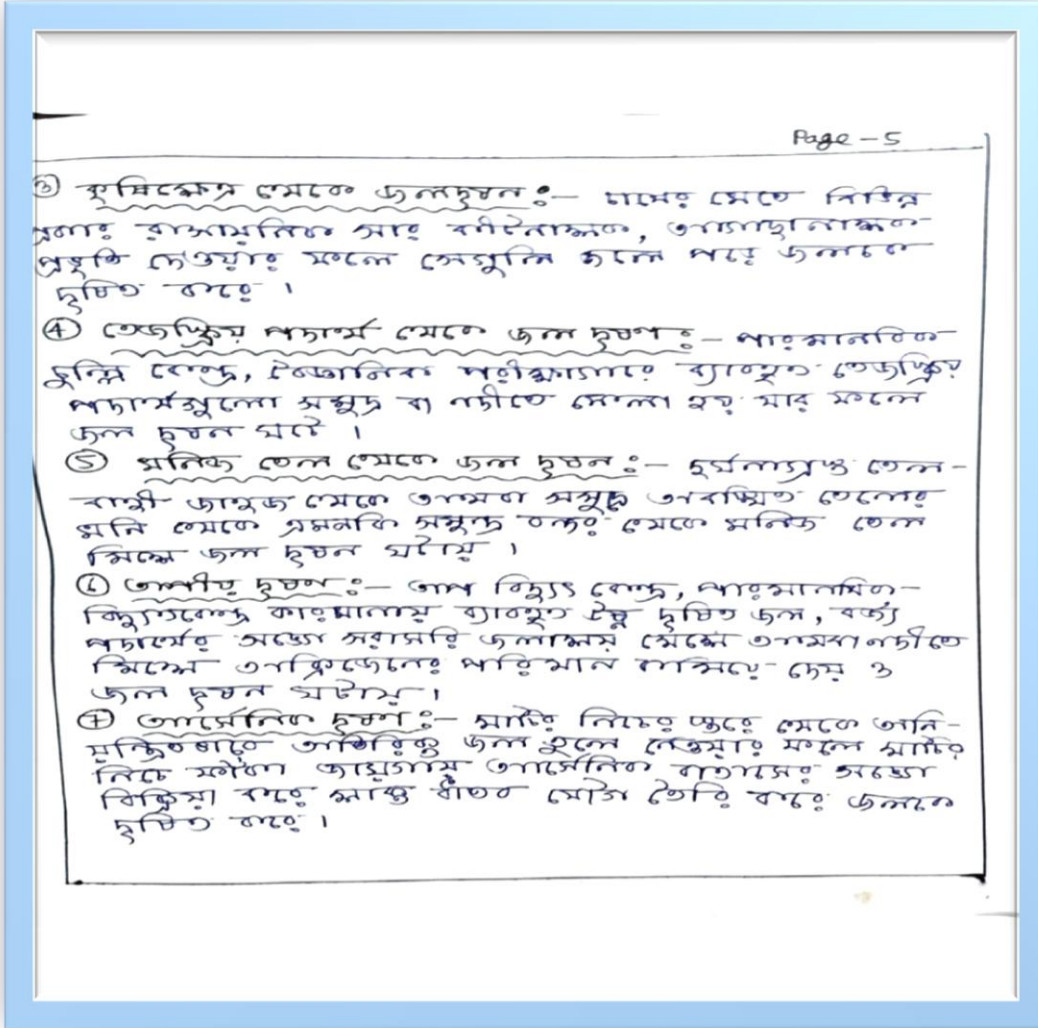 Page - 5
③ কৃষিক্ষেত্র থেকে জলদূষন :- চাষের ক্ষেতে বিভিন্ন
প্রকার রাসায়নিক সার কীটনাশক, আগাছানাশক
প্রভৃতি দেওয়ার ফলে সেগুলি জলে পরে জলকে
দূষিত করে ।
④ তেজস্ক্রিয় পদার্থ থেকে জল দূষণ :- পারমানবিক
চুল্লি কেন্দ্র, বৈজ্ঞানিক পরীক্ষাগারে ব্যাবহৃত তেজস্ক্রিয়
পদার্থগুলো সমুদ্র বা নদীতে ফেলা হয় যার ফলে
জল দূষন ঘটে ।
⑤ খনিজ তেল থেকে জল দূষন :- দূর্ঘনাগ্রস্ত তেল-
বাহী জাহজ থেকে অথবা সমুদ্রে অবস্থিত তেলের
খনি থেকে এমনকি সমুদ্র বন্দর থেকে খনিজ তেল
মিশে জল দূষন ঘটায় ।
⑥ তাপীয় দূষণ :- তাপ বিদ্যুৎ কেন্দ্র, পারমানবিক-
বিদ্যুতকেন্দ্র কারখানায় ব্যাবহৃত উষ্ণ দূষিত জল, বর্জ্য
পদার্থের সঙ্গে সরাসরি জলাশয় মেশে অথবা নদীতে
মিশে অক্সিজেনের পরিমান কমিয়ে দেয় ও
জল দূষন ঘটায় ।
⑦ আর্সেনিক দূষণ :- মাটির নিচের স্তরে থেকে অনি-
য়ন্ত্রিতভাবে অতিরিক্ত জল তুলে নেওয়ার ফলে মাটির
নিচে ফাঁকা জায়গায় আর্সেনিক বাতাসের সঙ্গে
বিক্রিয়া করে ধাতব যৌগ তৈরি করে জলকে
দূষিত করে ।